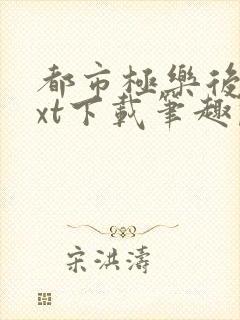 都市極樂後
xt下載筆趣
宋洪濤